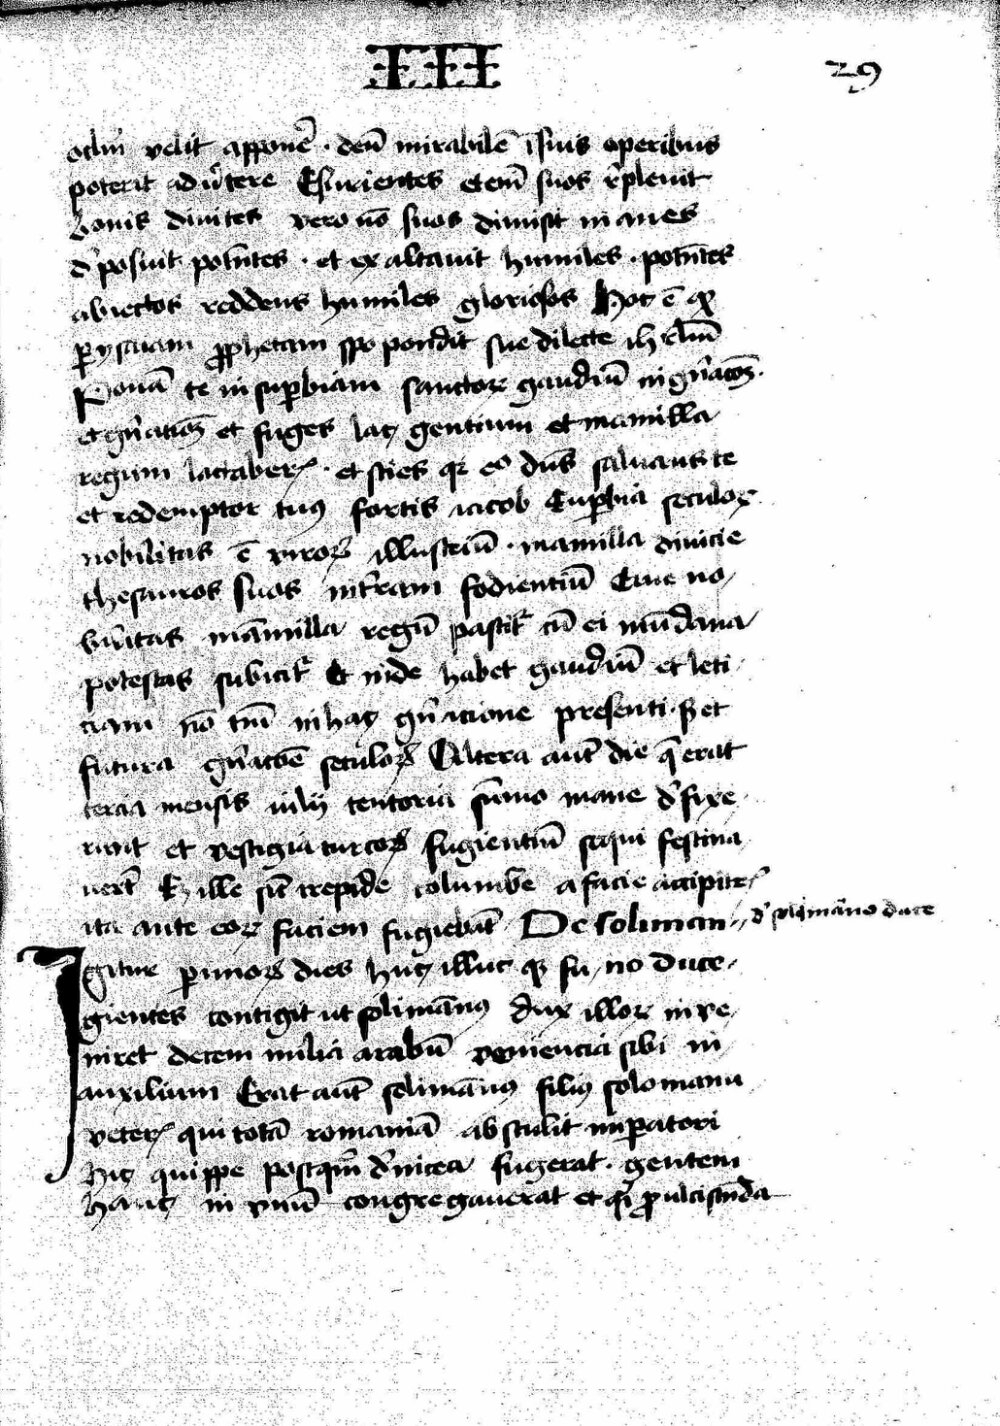 III
29
oclm̄ velit apponē · deū mirabilē ī suis operibus
poterit advertere Esurientes etem̄ suos replevit
bonis divites vero nō suos dimisit inanes
deposuit potentes · et exaltavit humiles · potentes
abiectos reddens humiles gloriosos Hoc ē qd
per ysaiam prophetam spopondit sue dilecte ihrlm̄
Ponā te in superbiam sanctorum gaudiū in gn̄acōem
et gn̄acōem et suges lac gentium et mamilla
regum lactaberis · et scies qr ego dn̄s salvans te
et redemptor tuus fortis iacob Superbia seculorum
nobilitas ē virorum illustriū · mamilla divicie
thesauros suos in terram fodientiū Sine no
mamilla regū pascitur cū ei mūdana
potestas subicitur Et inde habet gaudiū et leti
ciam nō tm̄ in hac gn̄acione presenti · sed et
futura gn̄acōe seculorum Altera aut̄ die q̄ erat
tercia mensis iulij tentoria sūmo mane defixe
runt et vestigia turcorum fugientiū sequi festina
verūt Et ille sicut trepide columbe a facie accipitris
ita ante eorum faciem fugiebāt De soliman
d' solimāno duce
Igitur per imos dies huc illuc qz fu no duce
gientes contigit ut solimānus dux illorum inve
niret decem milia arabū veniencia sibi in
auxilium Erat aut̄ solimānus filius solomanni
veteris qui totā romaniā abstulit imperatori
hic quippe postquam de nicea fugerat · gentem
hanc in unū congregaverat et qsi pro ulciscenda